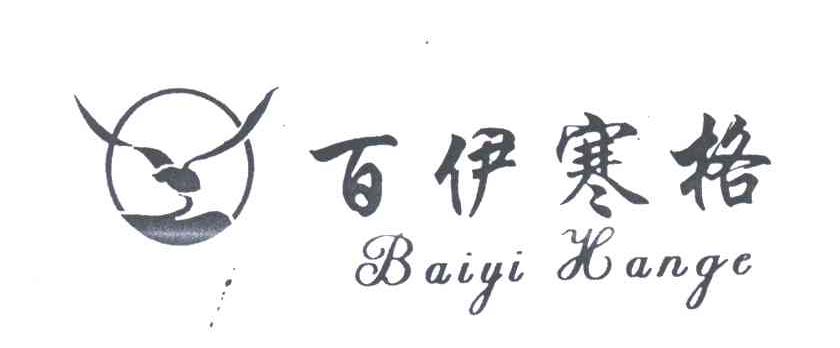 百伊寒格
Baiyi Hange